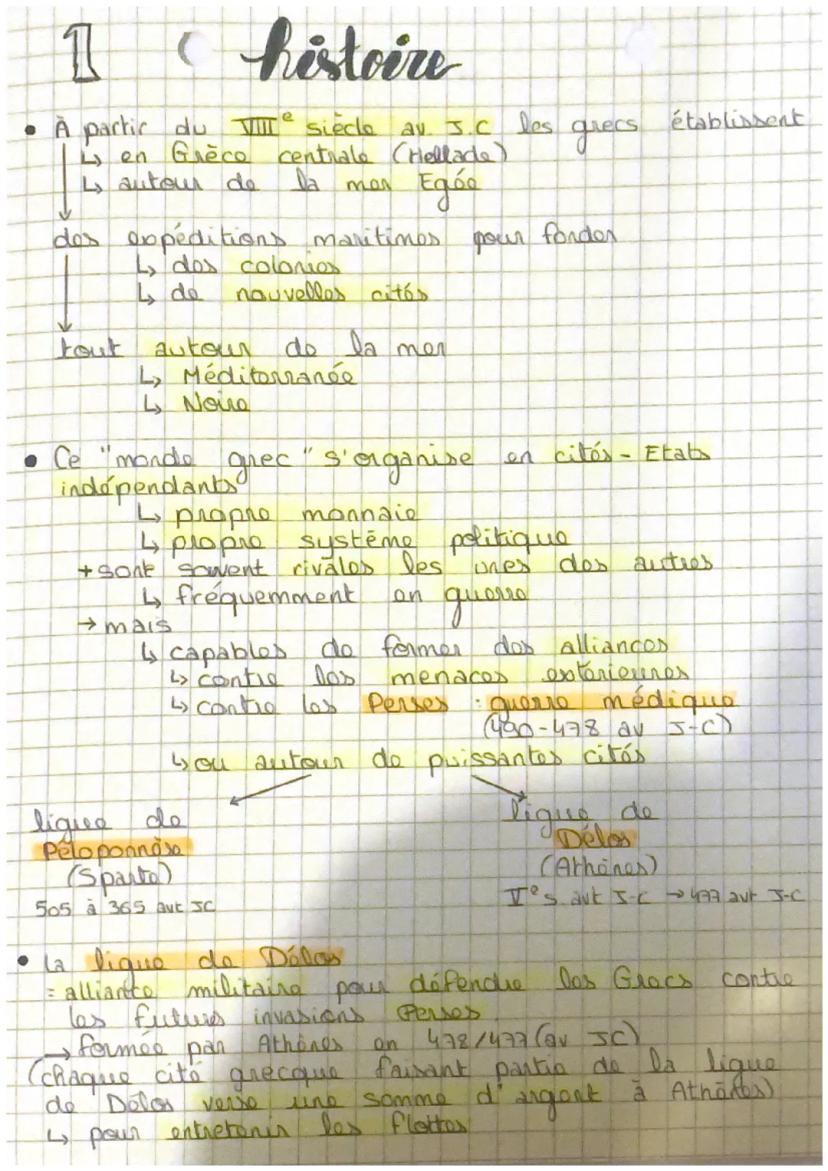 1 histoire
• À partir du VIIIe siècle av. J.C les grecs établissent
↳ en Grèce centrale (Hellade)
↳ autour de la mer Egée
des expéditions maritimes pour fonder
↳ des colonies
↳ de nouvelles cités
tout autour de la mer
↳ Méditerranée
↳ Noire
• Ce "monde grec" s'organise en cités - Etats
indépendants
↳ propre monnaie
↳ propre système politique
+ sont souvent rivales les unes des autres
↳ fréquemment en guerre
→ mais
↳ capables de former des alliances
↳ contre les menaces extérieures
↳ contre les Perses : guerre médique
(490-478 av J-C)
↳ ou autour de puissantes cités
ligue de
Péloponnèse
(Sparte)
505 à 365 avt JC
ligue de
Délos
(Athènes)
Ve s. avt J-C → 477 avt J-C
• La ligue de Délos
= alliance militaire pour défendre les Grecs contre
les futurs invasions Perses.
→ formée par Athènes en 478/477 (av JC)
(chaque cité grecque faisant partie de la ligue
de Délos verse une somme d'argent à Athènes)
↳ pour entretenir les flottes